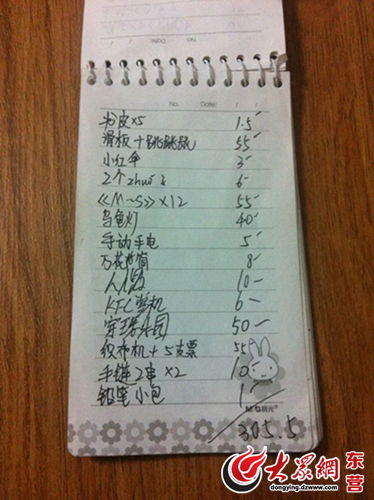 No.
Date:
粉皮×5 1.5
滑板+跳跳鼠 55
小红伞 3
2个zhuō子 6
《M~S》×12 55
乌龟灯 40
手动手电 5
万花筒 8
人人 10
KFC雪机 6
穿珠乐园 50
织布机+5支票 55
手链2串×2 10
铅笔小包 1
M&G晨光
305.5
大众网 东营
dongying.dzwww.com